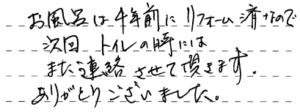 お風呂は4年前にリフォーム済なので
次回トイレの時には
また連絡させて頂きます。
ありがとうございました。